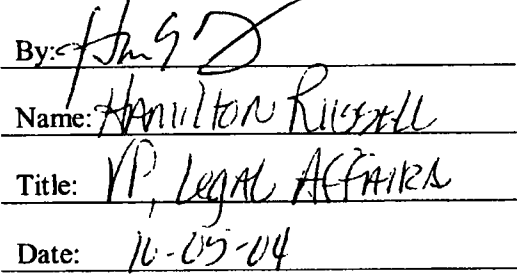 By:
Name: Hamilton Russell
Title: VP, Legal Affairs
Date: 10-05-04